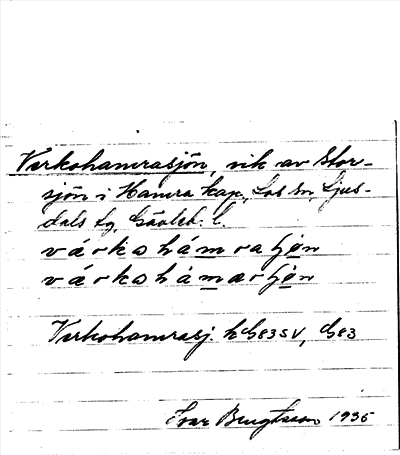 Verkohamrasjön, vik av Stor-
sjön i Hamra kap., Los sn, Ljus-
dals tg, Gävleb. l.
várkohámrafjøn
várkahámarfjøn
Verkohamrasj. k G83SV, G83
Ivar Bengtsson 1935